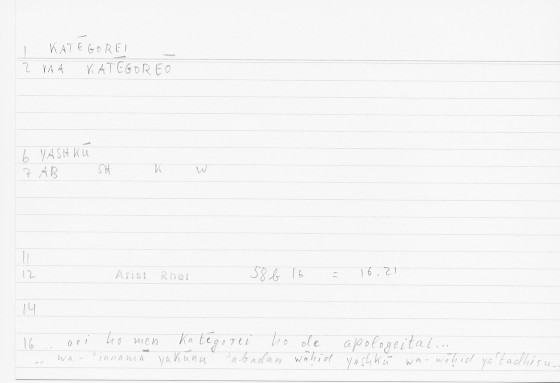 1 KATĒGOREI
2 VAA KATĒGOREŌ
6 YASHKŪ
7 AB SH K W
11
12 Arist Rhet 58b 16 = 16.21
14
16 .. aei ho men katēgorei ho de apologeitai...
.. wa-'innamā yakūnu 'abadan wāḥid yashkū wa-wāḥid ya'tadhiru..